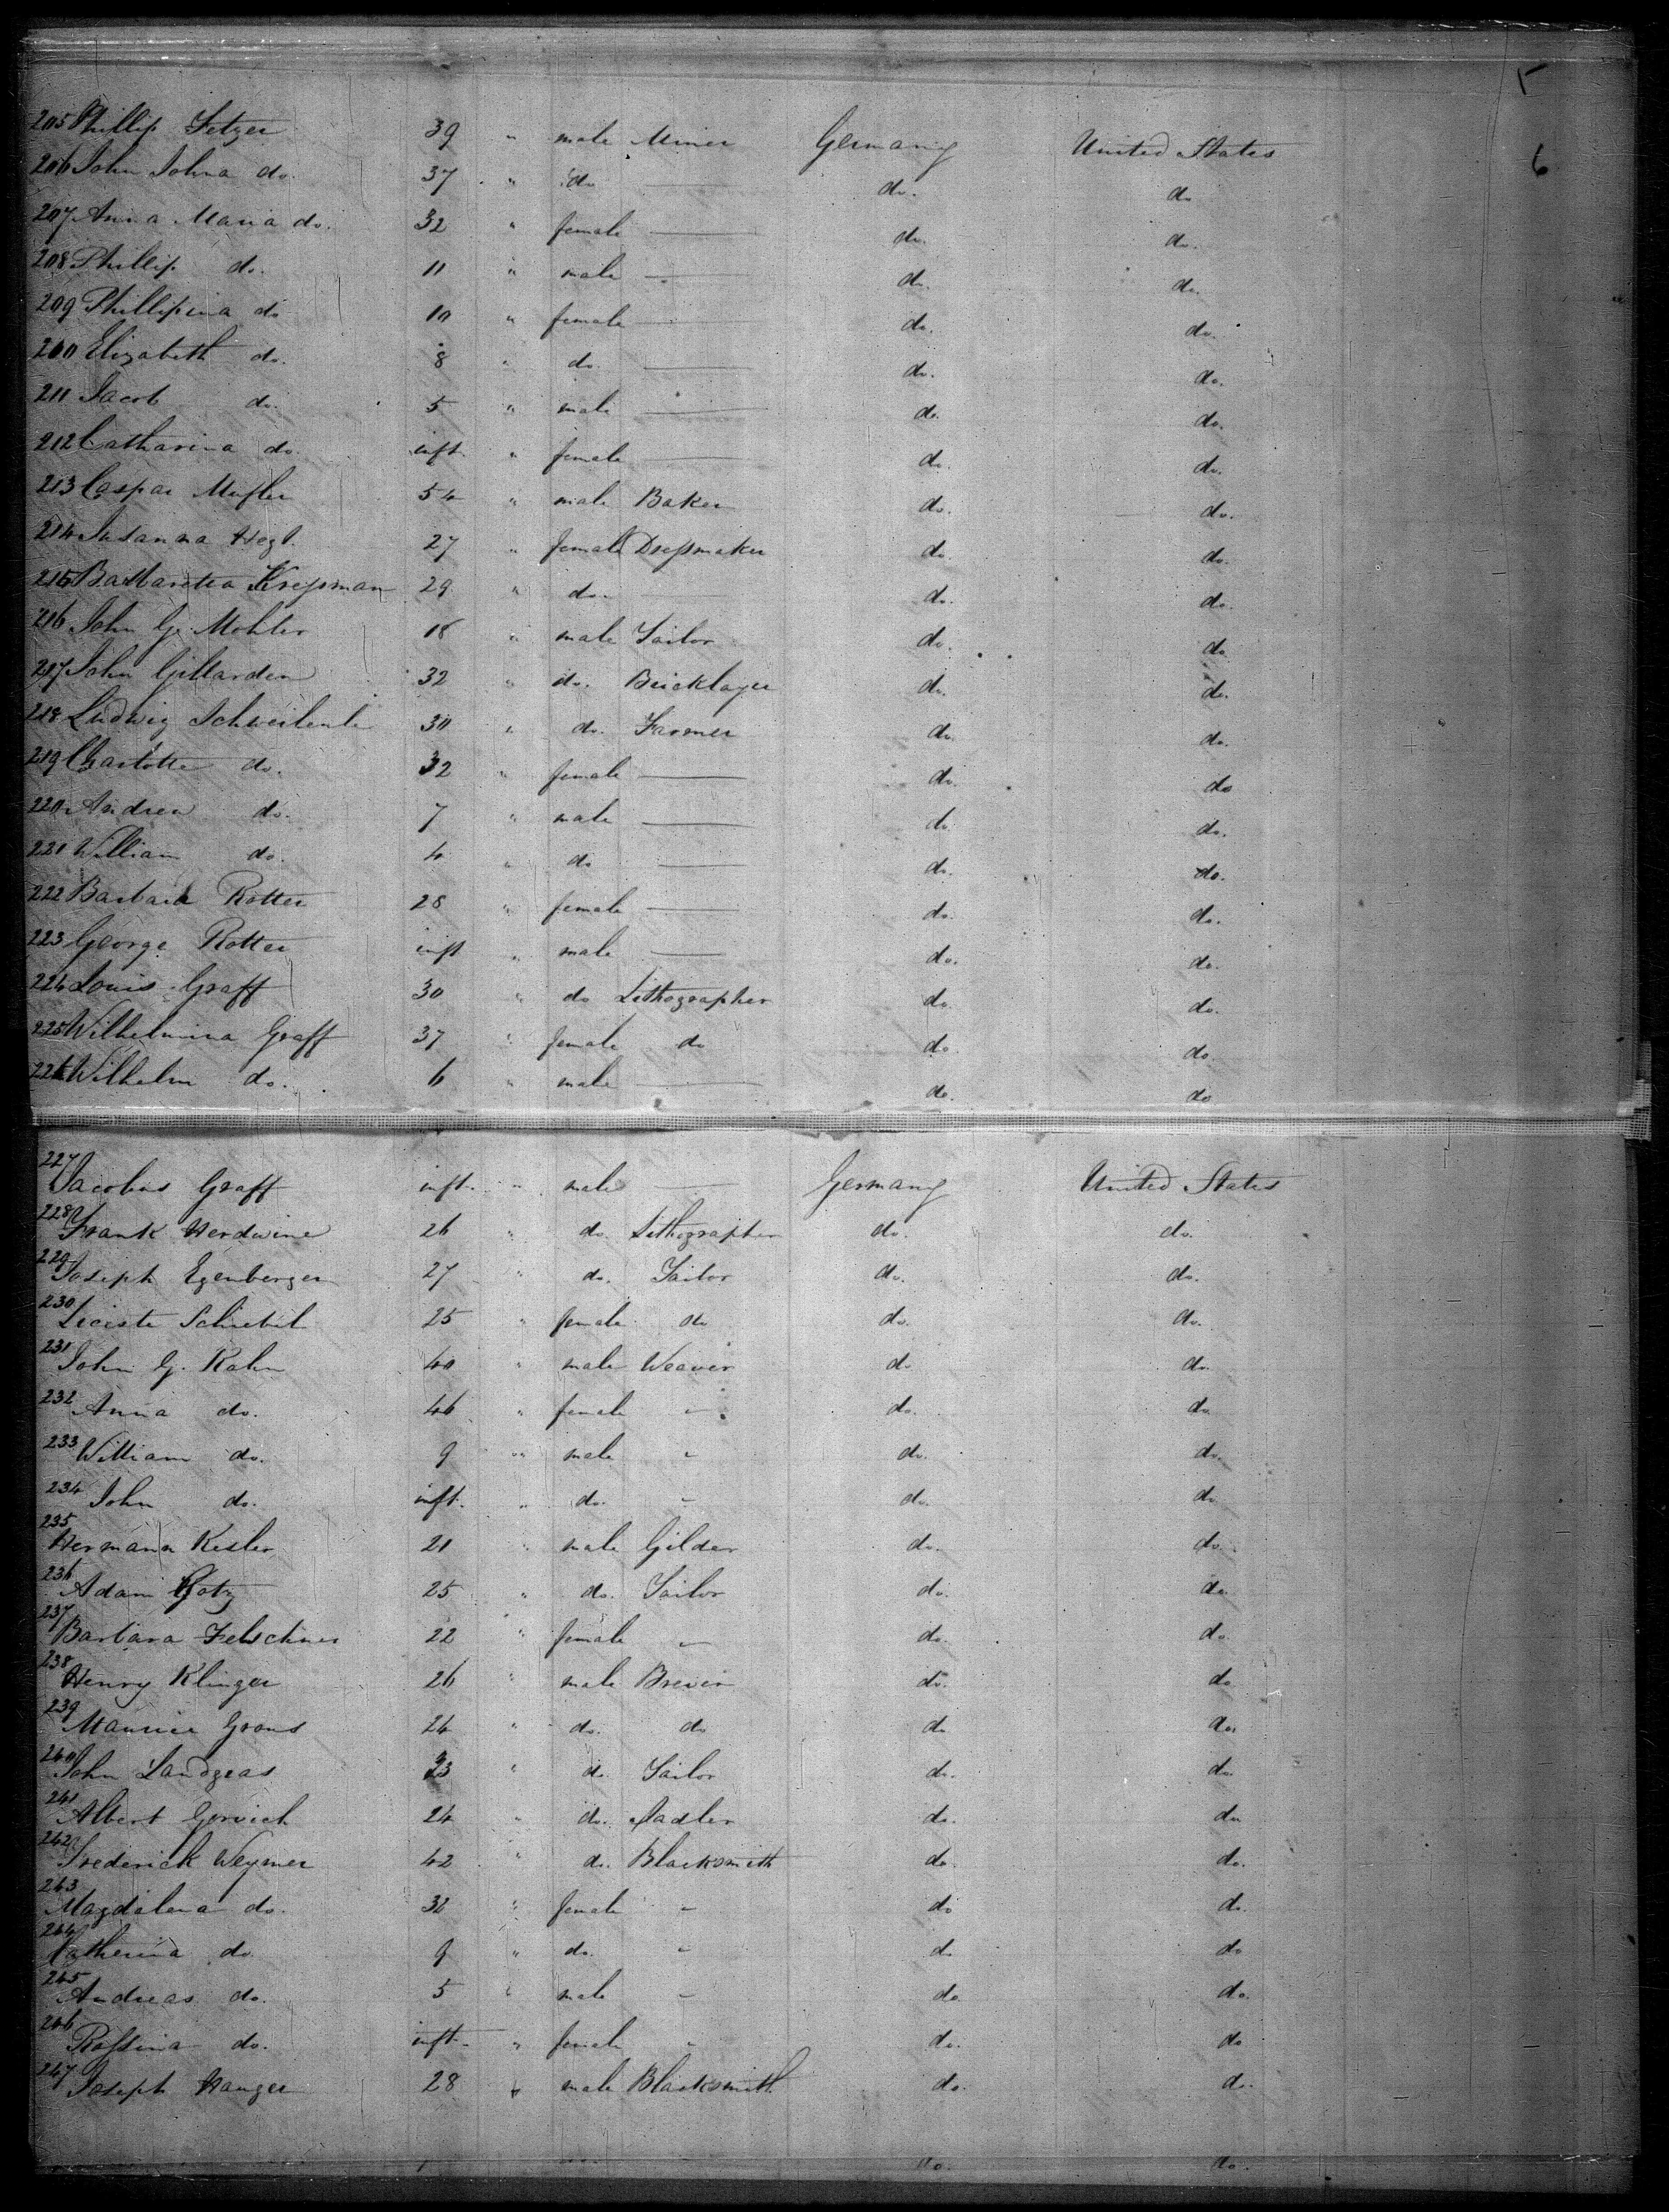 5
6
205 Phillip Setzer 39 " male Miner Germany United States
206 John Johna do. 37 " do — do. do
207 Anna Maria do. 32 " female — do. do.
208 Phillip do. 11 " male — do. do.
209 Phillipina do 10 " female — do. do.
210 Elizabeth do. 8 " do. — do. do.
211 Jacob do. 5 " male — do. do.
212 Catharina do. inft. " female — do. do.
213 Caspar 54 " male Baker do. do.
214 Susanna 27 " female Dressmaker do. do.
215 Kressman 29 " do. — do. do.
216 John G. Mohler 18 " male Tailor do. do.
217 John Gillarden 32 " do. Bricklayer do. do.
218 Ludwig 30 " do. Farmer do. do.
219 Charlotte do. 32 " female — do. do
220 Andrew do. 7 " male — do. do.
221 William do. 4 " do — do. do.
222 Barbara Rotter 28 " female — do. do.
223 George Rotter inft " male — do. do.
224 Louis Graff 30 " do Lithographer do. do.
225 Wilhelmina Graff 37 " female do do. do.
226 Wilhelm do. 6 " male — do. do
227 Jacobus Graff inft. " male — Germany United States
228 Frank Herdwine 26 " do. Lithographer do. do.
229 Joseph Egenberger 27 " do. Tailor do. do.
230 25 " female do do. do.
231 John G. Kahn 40 " male Weaver do do.
232 Anna do. 46 " female " do. do.
233 William do. 9 " male " do. do.
234 John do. inft. " do. " do. do.
235 Hermann Kesler 21 " male Gilder do. do.
236 Adam Gotz 25 " do. Tailor do. do.
237 Barbara 22 " female " do. do.
238 Henry Klinger 26 " male Brewer do. do
239 Maurice 24 " do. do do do.
240 John Landgras 23 " do. Tailor do. do.
241 Albert 24 " do. Sadler do. do.
242 Frederick Weymer 42 " do. Blacksmith do. do.
243 Magdalena do. 32 " female " do do.
244 Katherina do 9 " do. " do do
245 Andreas do. 5 " male " do. do.
246 Rossina do. inft. " female " do. do
247 Joseph Hanger 28 " male Blacksmith do. do.
do. do.